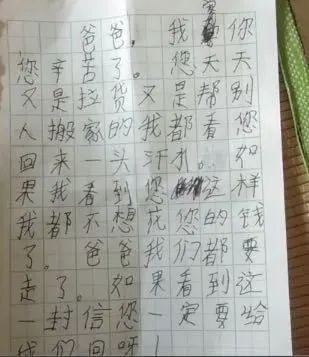 爸爸，我要你
您辛苦了。您天天
又是拉货又是帮别
人搬家的我都看您
回来一头汗水。如
果我看到您这样
我都不想花您的钱
了。爸爸我们都要
走了。如果看到这
一封信您一定要给
我们回呀！